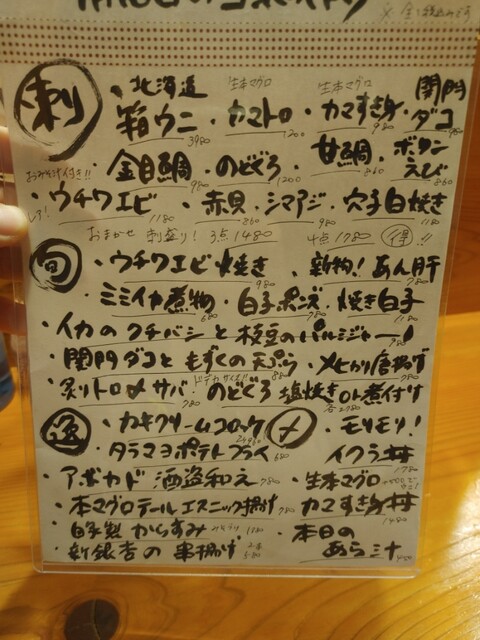 刺
・北海道 箱ウニ 3980
・生本マグロ カマトロ 1200
・生本マグロ カマすき身 980
・関門ダコ 980
おみそ汁付き!!
・金目鯛 980 ・のどぐろ 1200 ・甘鯛 860 ・ボタンえび 860
・ウチワエビ 1180 ・赤貝 860 ・シマアジ 980 ・穴子白焼き 1180
おまかせ 刺盛り! 3点 1480 4点 1780 得!!
旬
・ウチワエビ焼き 980 ・新物!あん肝 780
・ミミイカ煮物 680 ・白子ポン酢 980 ・焼き白子 1180
・イカのクチバシと枝豆のパルミジャーノ
・関門ダコともずくの天ぷら 880 ・メヒカリ唐揚げ
・炙りトロ〆サバ! 780 のどぐろ 塩焼きor煮付け 各2780
・カキクリームコロッケ 2ケ 960
・タラマヨポテトフライ 680
・アボカド 酒盗和え 780
・本マグロテールエスニック揚げ 780
・自家製 からすみ 1180
・新銀杏の串揚げ 2本 580
〆
・モリモリ!イクラ丼 1780
・生本マグロ カマすき身丼 1480
・本日のあら汁 450